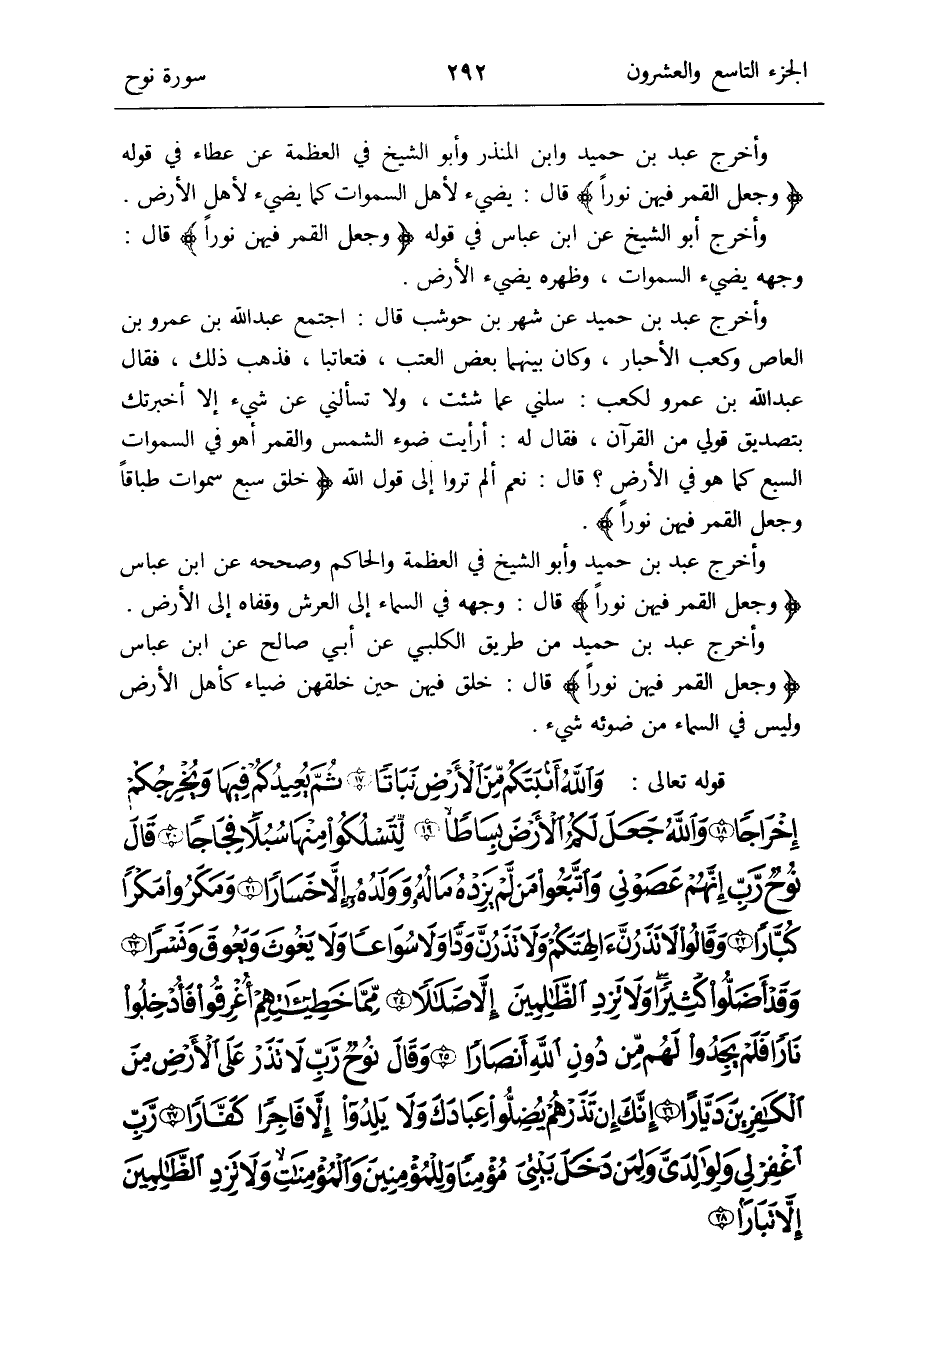 الجزء التاسع والعشرون ٢٩٢ سورة نوح
وأخرج عبد بن حميد وابن المنذر وأبو الشيخ في العظمة عن عطاء في قوله
﴿ وجعل القمر فيهن نوراً ﴾ قال : يضيء لأهل السموات كما يضيء لأهل الأرض .
وأخرج أبو الشيخ عن ابن عباس في قوله ﴿ وجعل القمر فيهن نوراً ﴾ قال :
وجهه يضيء السموات ، وظهره يضيء الأرض .
وأخرج عبد بن حميد عن شهر بن حوشب قال : اجتمع عبدالله بن عمرو بن
العاص وكعب الأحبار ، وكان بينهما بعض العتب ، فتعاتبا ، فذهب ذلك ، فقال
عبدالله بن عمرو لكعب : سلني عما شئت ، ولا تسألني عن شيء إلا أخبرتك
بتصديق قولي من القرآن ، فقال له : أرأيت ضوء الشمس والقمر أهو في السموات
السبع كما هو في الأرض ؟ قال : نعم ألم تروا إلى قول الله ﴿ خلق سبع سموات طباقاً
وجعل القمر فيهن نوراً ﴾ .
وأخرج عبد بن حميد وأبو الشيخ في العظمة والحاكم وصححه عن ابن عباس
﴿ وجعل القمر فيهن نوراً ﴾ قال : وجهه في السماء إلى العرش وقفاه إلى الأرض .
وأخرج عبد بن حميد من طريق الكلبي عن أبي صالح عن ابن عباس
﴿ وجعل القمر فيهن نوراً ﴾ قال : خلق فيهن حين خلقهن ضياء كأهل الأرض
وليس في السماء من ضوئه شيء .
قوله تعالى : وَٱللَّهُ أَنۢبَتَكُم مِّنَ ٱلْأَرْضِ نَبَاتًا ١٧ ثُمَّ يُعِيدُكُمْ فِيهَا وَيُخْرِجُكُمْ
إِخْرَاجًا ١٨ وَٱللَّهُ جَعَلَ لَكُمُ ٱلْأَرْضَ بِسَاطًا ١٩ لِّتَسْلُكُوا۟ مِنْهَا سُبُلًا فِجَاجًا ٢٠ قَالَ
نُوحٌ رَّبِّ إِنَّهُمْ عَصَوْنِى وَٱتَّبَعُوا۟ مَن لَّمْ يَزِدْهُ مَالُهُۥ وَوَلَدُهُۥٓ إِلَّا خَسَارًا ٢١ وَمَكَرُوا۟ مَكْرًا
كُبَّارًا ٢٢ وَقَالُوا۟ لَا تَذَرُنَّ ءَالِهَتَكُمْ وَلَا تَذَرُنَّ وَدًّا وَلَا سُوَاعًا وَلَا يَغُوثَ وَيَعُوقَ وَنَسْرًا ٢٣
وَقَدْ أَضَلُّوا۟ كَثِيرًا وَلَا تَزِدِ ٱلظَّـٰلِمِينَ إِلَّا ضَلَـٰلًا ٢٤ مِّمَّا خَطِيٓـَٔـٰتِهِمْ أُغْرِقُوا۟ فَأُدْخِلُوا۟
نَارًا فَلَمْ يَجِدُوا۟ لَهُم مِّن دُونِ ٱللَّهِ أَنصَارًا ٢٥ وَقَالَ نُوحٌ رَّبِّ لَا تَذَرْ عَلَى ٱلْأَرْضِ مِنَ
ٱلْكَـٰفِرِينَ دَيَّارًا ٢٦ إِنَّكَ إِن تَذَرْهُمْ يُضِلُّوا۟ عِبَادَكَ وَلَا يَلِدُوٓا۟ إِلَّا فَاجِرًا كَفَّارًا ٢٧ رَّبِّ
ٱغْفِرْ لِى وَلِوَٰلِدَىَّ وَلِمَن دَخَلَ بَيْتِىَ مُؤْمِنًا وَلِلْمُؤْمِنِينَ وَٱلْمُؤْمِنَـٰتِ وَلَا تَزِدِ ٱلظَّـٰلِمِينَ
إِلَّا تَبَارًۢا ٢٨